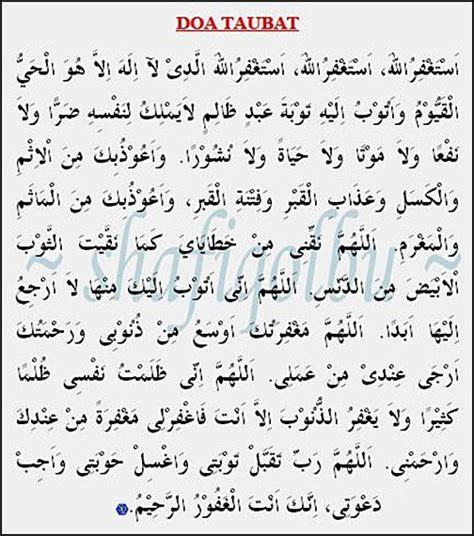 DOA TAUBAT
اَسْتَغْفِرُاللهَ، اَسْتَغْفِرُاللهَ، اَسْتَغْفِرُاللهَ الَّذِىْ لَآ اِلَهَ اِلاَّ هُوَ الْحَيُّ
الْقَيُّوْمُ وَاَتُوْبُ اِلَيْهِ تَوْبَةَ عَبْدٍ ظَالِمٍ لاَيَمْلِكُ لِنَفْسِهِ ضَرًّا وَلاَ
نَفْعًا وَلاَ مَوْتًا وَلاَ حَيَاةً وَلاَ نُشُوْرًا. وَاَعُوْذُبِكَ مِنَ الْاِثْمِ
وَالْكَسَلِ وَعَذَابِ الْقَبْرِ وَفِتْنَةِ الْقَبْرِ، وَاَعُوْذُبِكَ مِنَ الْمَاثَمِ
وَالْمَغْرَمِ. اَللَّهُمَّ نَقِّنِى مِنْ خَطَايَايَ كَمَا نَقَّيْتَ الثَّوْبَ
الْاَبْيَضَ مِنَ الدَّنَسِ. اَللَّهُمَّ اِنِّى اَتُوْبُ اِلَيْكَ مِنْهَا لاَ اَرْجِعُ
اِلَيْهَا اَبَدًا. اَللَّهُمَّ مَغْفِرَتُكَ اَوْسَعُ مِنْ ذُنُوْبِى وَرَحْمَتُكَ
اَرْجَى عِنْدِى مِنْ عَمَلِى. اَللَّهُمَّ اِنِّى ظَلَمْتُ نَفْسِى ظُلْمًا
كَثِيْرًا وَلاَ يَغْفِرُ الذُّنُوْبَ اِلاَّ اَنْتَ فَاغْفِرْلِى مَغْفِرَةً مِنْ عِنْدِكَ
وَارْحَمْنِى. اَللَّهُمَّ رَبِّ تَقَبَّلْ تَوْبَتِى وَاغْسِلْ حَوْبَتِى وَاَجِبْ
دَعْوَتِى، اِنَّكَ اَنْتَ الْغَفُوْرُ الرَّحِيْمُ.
~ shafiqolbu ~